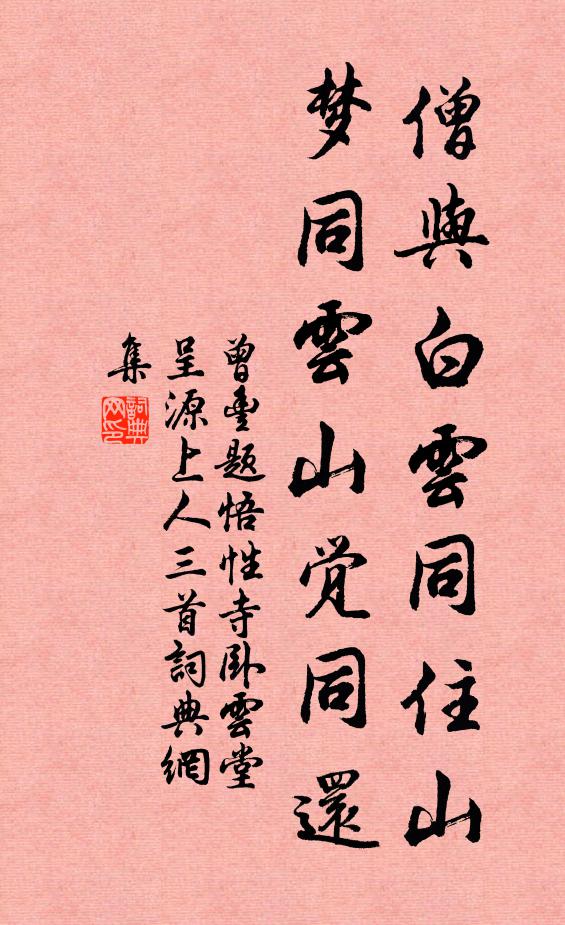 僧與白雲同住山
梦同雲山觉同還
曾豊题悟性寺卧雲堂
呈源上人三首詞典網
集
詞典
网印